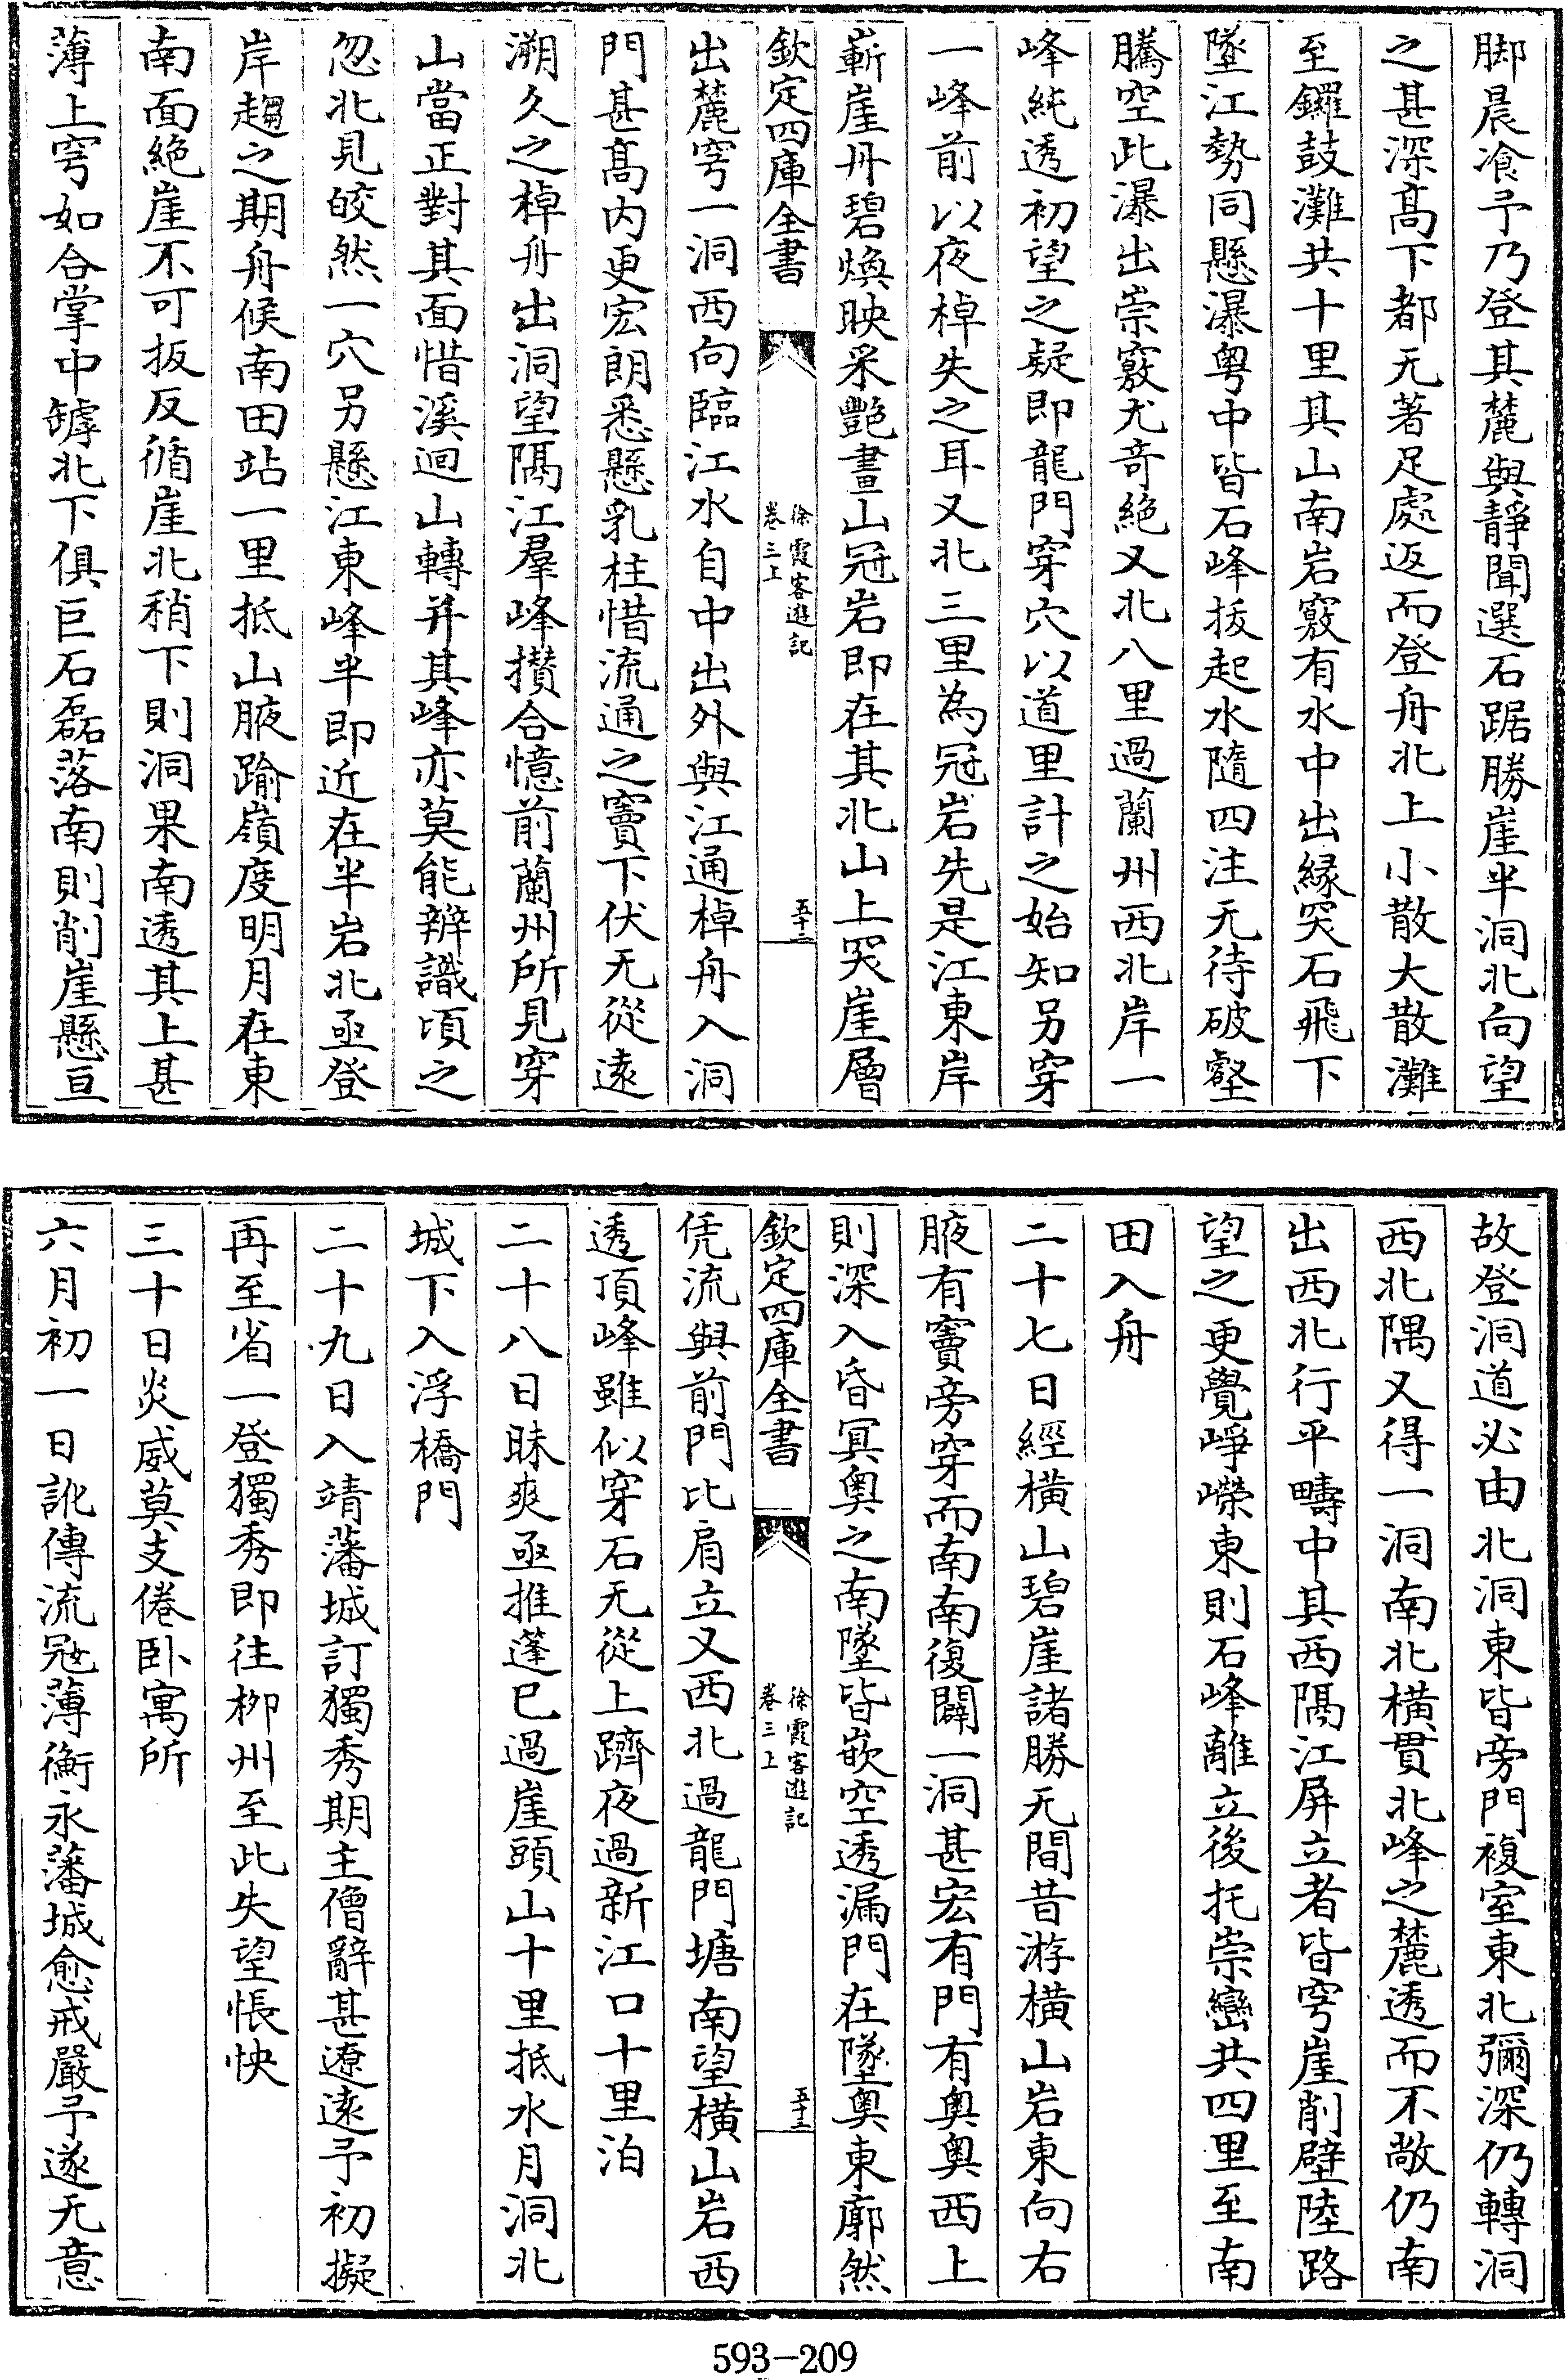 脚晨飡予乃登其麓與靜聞選石踞勝崖半洞北向望
之甚深髙下都无著足處返而登舟北上小散大散灘
至鑼鼓灘共十里其山南岩竅有水中出緣突石飛下
墜江勢同懸瀑粤中皆石峰拔起水隨四注无待破壑
騰空此瀑出崇竅尤竒絶又北八里過蘭州西北岸一
峰純透初望之疑即龍門穿穴以道里計之始知另穿
一峰前以夜棹失之耳又北三里為冠岩先是江東岸
嶄崖丹碧煥映采艷畫山冠岩即在其北山上突崖層
欽定四庫全書
徐霞客遊記
卷三上
五十二
出麓穹一洞西向臨江水自中出外與江通棹舟入洞
門甚髙内更宏朗悉懸乳柱惜流通之竇下伏无從遠
溯久之棹舟出洞望隔江羣峰攅合憶前蘭州所見穿
山當正對其面惜溪迴山轉并其峰亦莫能辨識頃之
忽北見皎然一穴另懸江東峰半即近在半岩北亟登
岸趨之期舟候南田站一里抵山腋踰嶺度明月在東
南面絶崖不可扳反循崖北稍下則洞果南透其上甚
薄上穹如合掌中罅北下俱巨石磊落南則削崖懸亘
故登洞道必由北洞東皆旁門複室東北彌深仍轉洞
西北隅又得一洞南北橫貫北峰之麓透而不敞仍南
出西北行平疇中其西隔江屏立者皆穹崖削壁陸路
望之更覺崢嶸東則石峰離立後托崇巒共四里至南
田入舟
二十七日經橫山碧崖諸勝无間昔游橫山岩東向右
腋有竇旁穿而南南復闢一洞甚宏有門有奧奧西上
則深入昏冥奧之南墜皆嵌空透漏門在墜奧東廓然
欽定四庫全書
徐霞客遊記
卷三上
五十三
凭流與前門比肩立又西北過龍門塘南望橫山岩西
透頂峰雖似穿石无從上躋夜過新江口十里泊
二十八日昧爽亟推蓬已過崖頭山十里抵水月洞北
城下入浮橋門
二十九日入靖藩城訂獨秀期主僧辭甚遼遠予初擬
再至省一登獨秀即往栁州至此失望悵怏
三十日炎威莫支倦卧寓所
六月初一日訛傳流冦薄衡永藩城愈戒嚴予遂无意
593-209